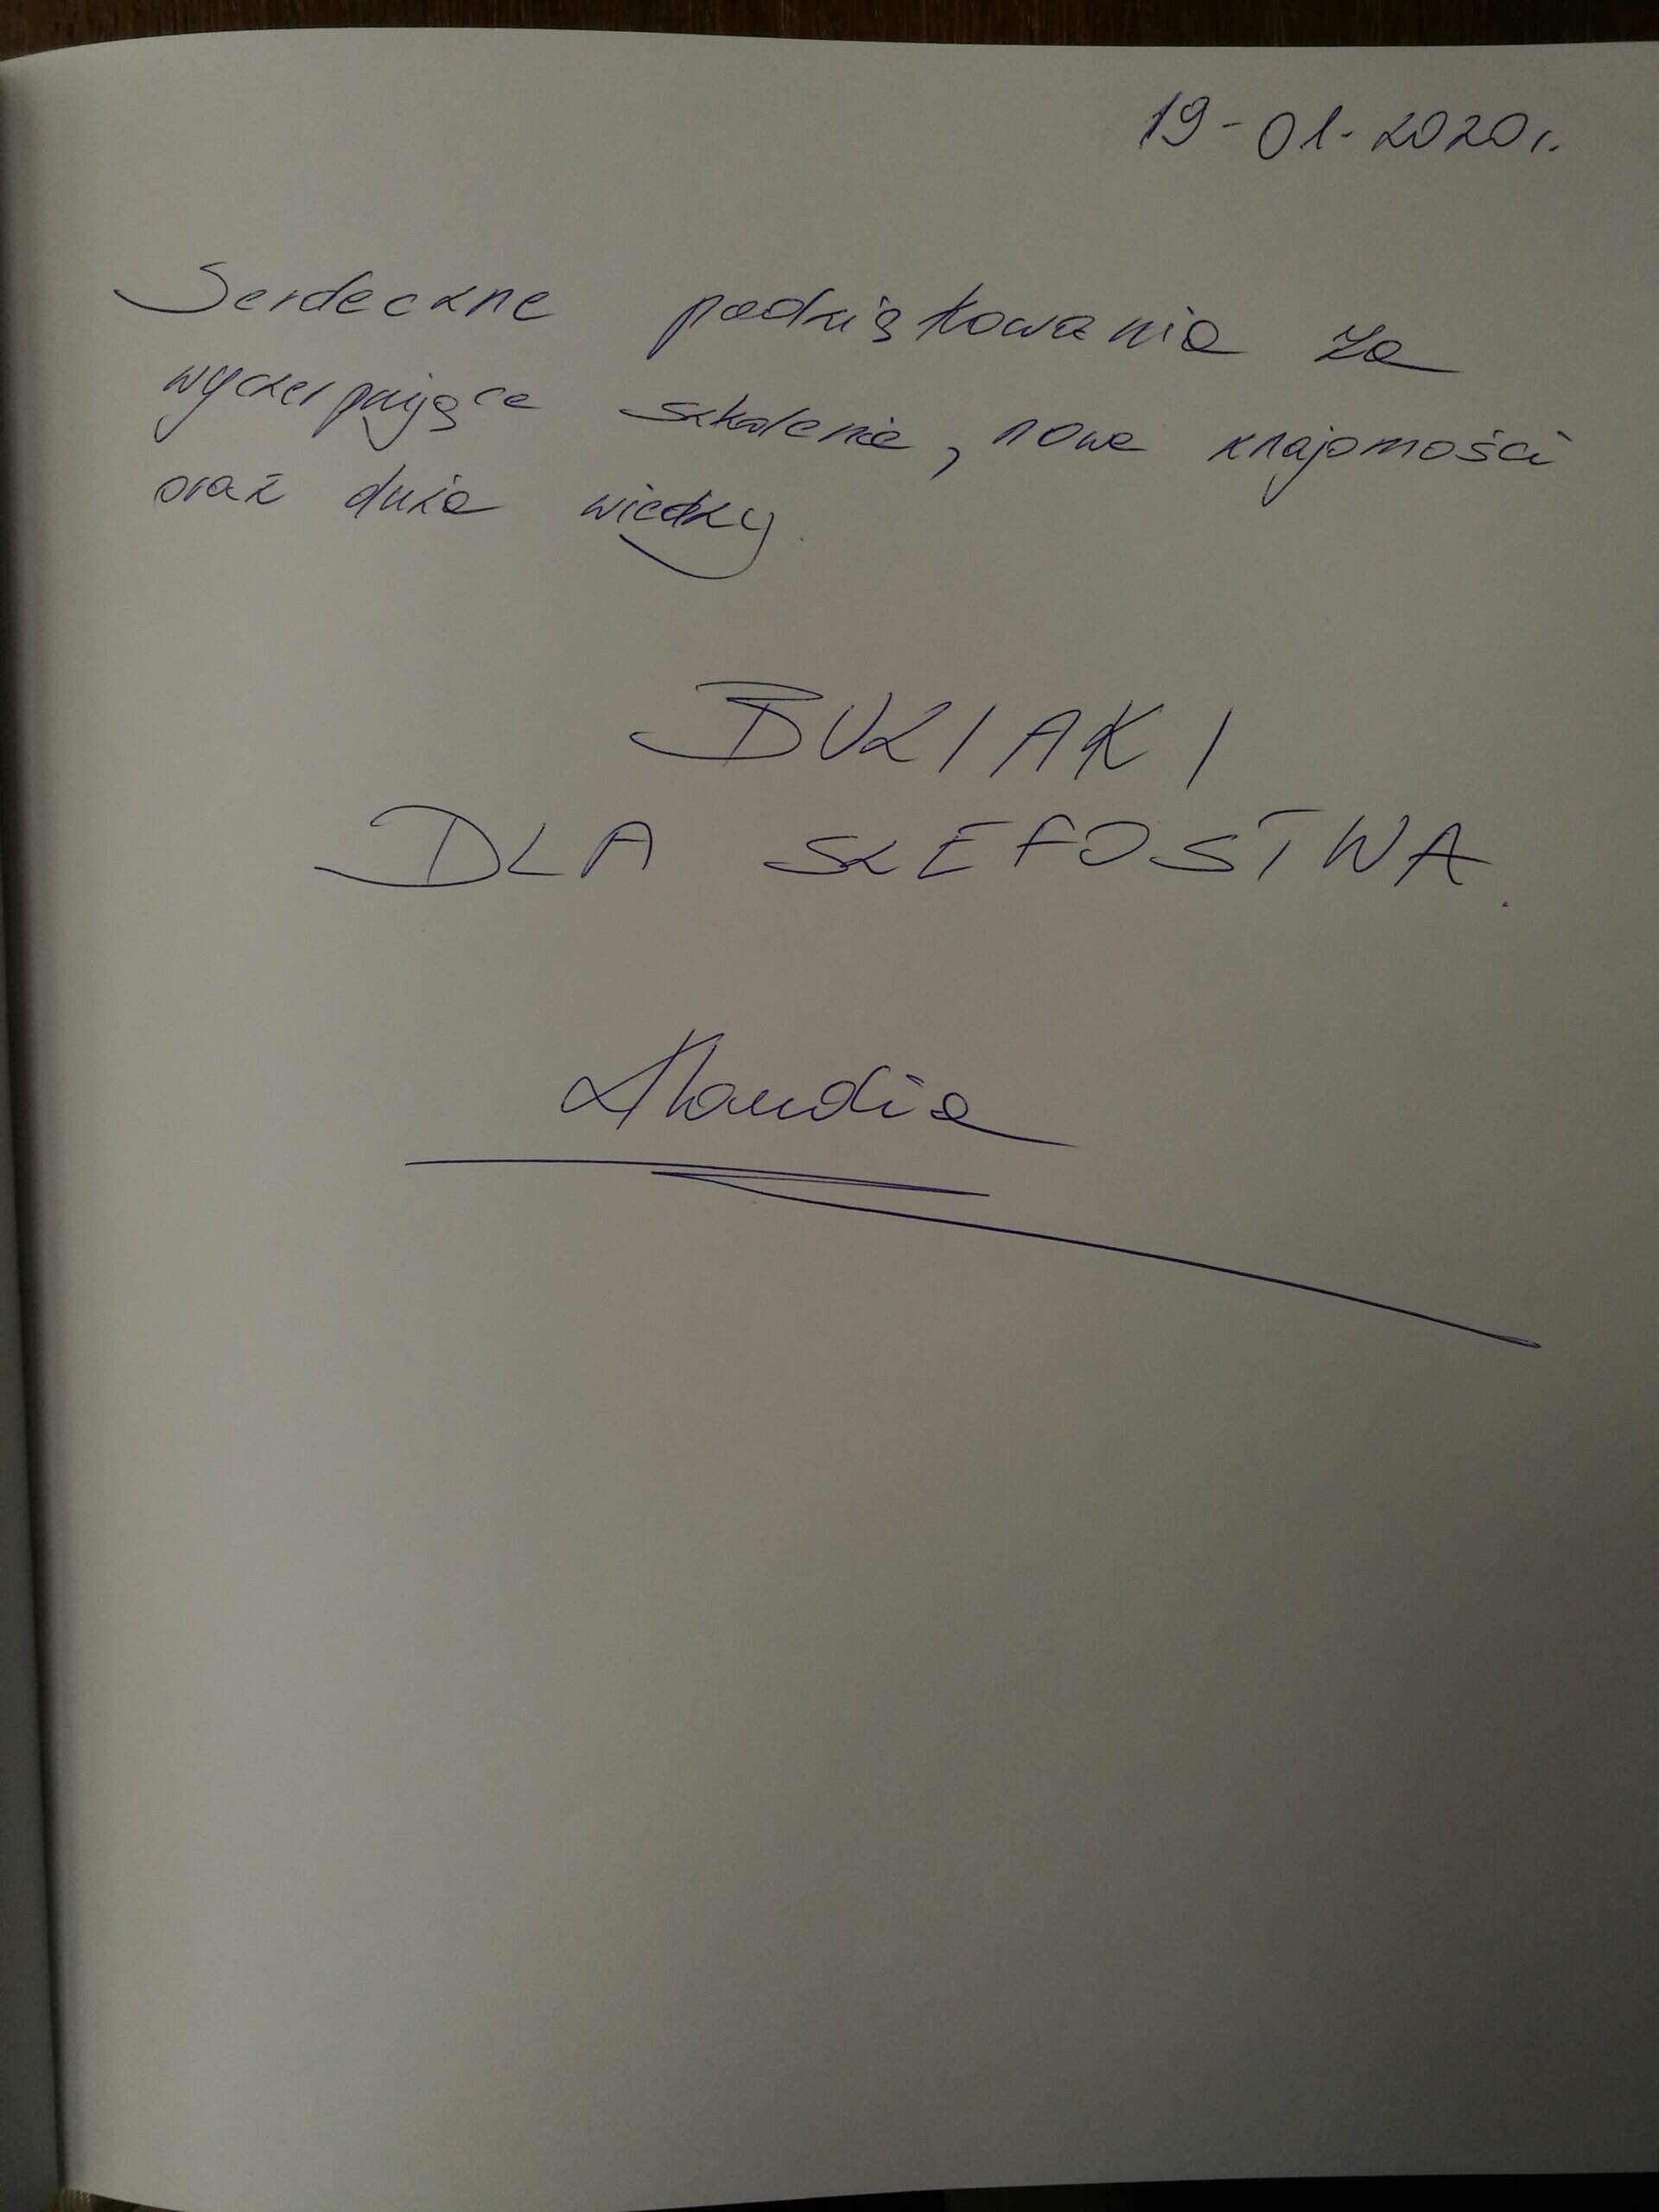 19-01-2020r.
Serdeczne podziękowania za
wyczerpujące szkolenie, nowe znajomości
oraz dużo wiedzy.
BUZIAKI
DLA SZEFOSTWA.
Klaudia